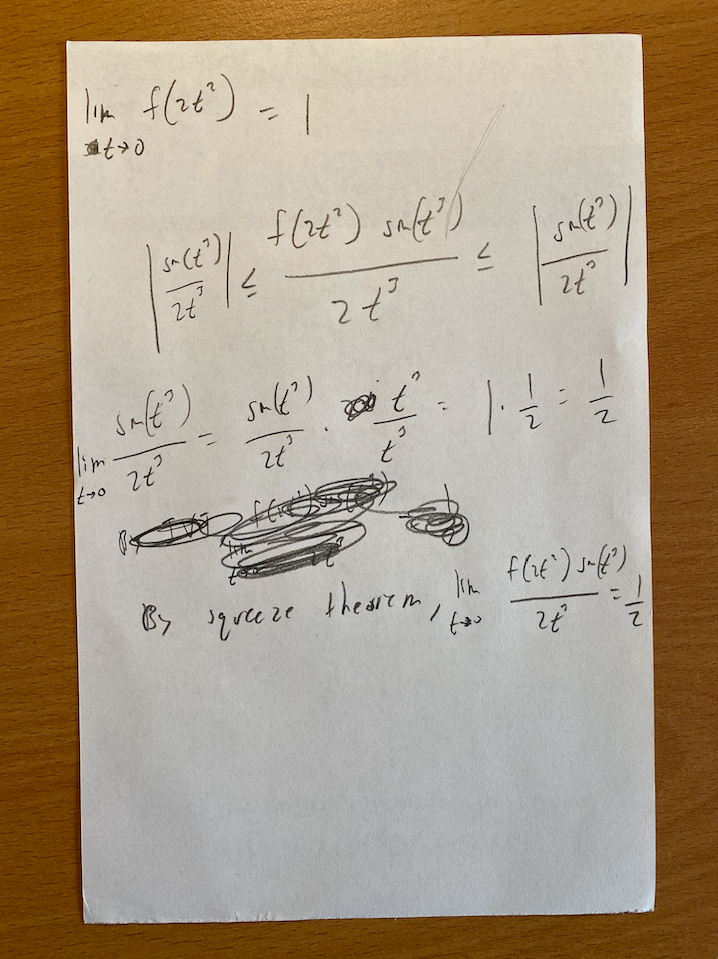 lim t→0 f(2t³) = 1
|sin(t³)/2t³| ≤ f(2t²) sin(t³)/2t³ ≤ |sin(t³)/2t³|
lim t→0 sin(t³)/2t³ = sin(t³)/2t³ · t³/t³ = 1 · 1/2 = 1/2
By squeeze theorem, lim t→0 f(2t²) sin(t³)/2t³ = 1/2